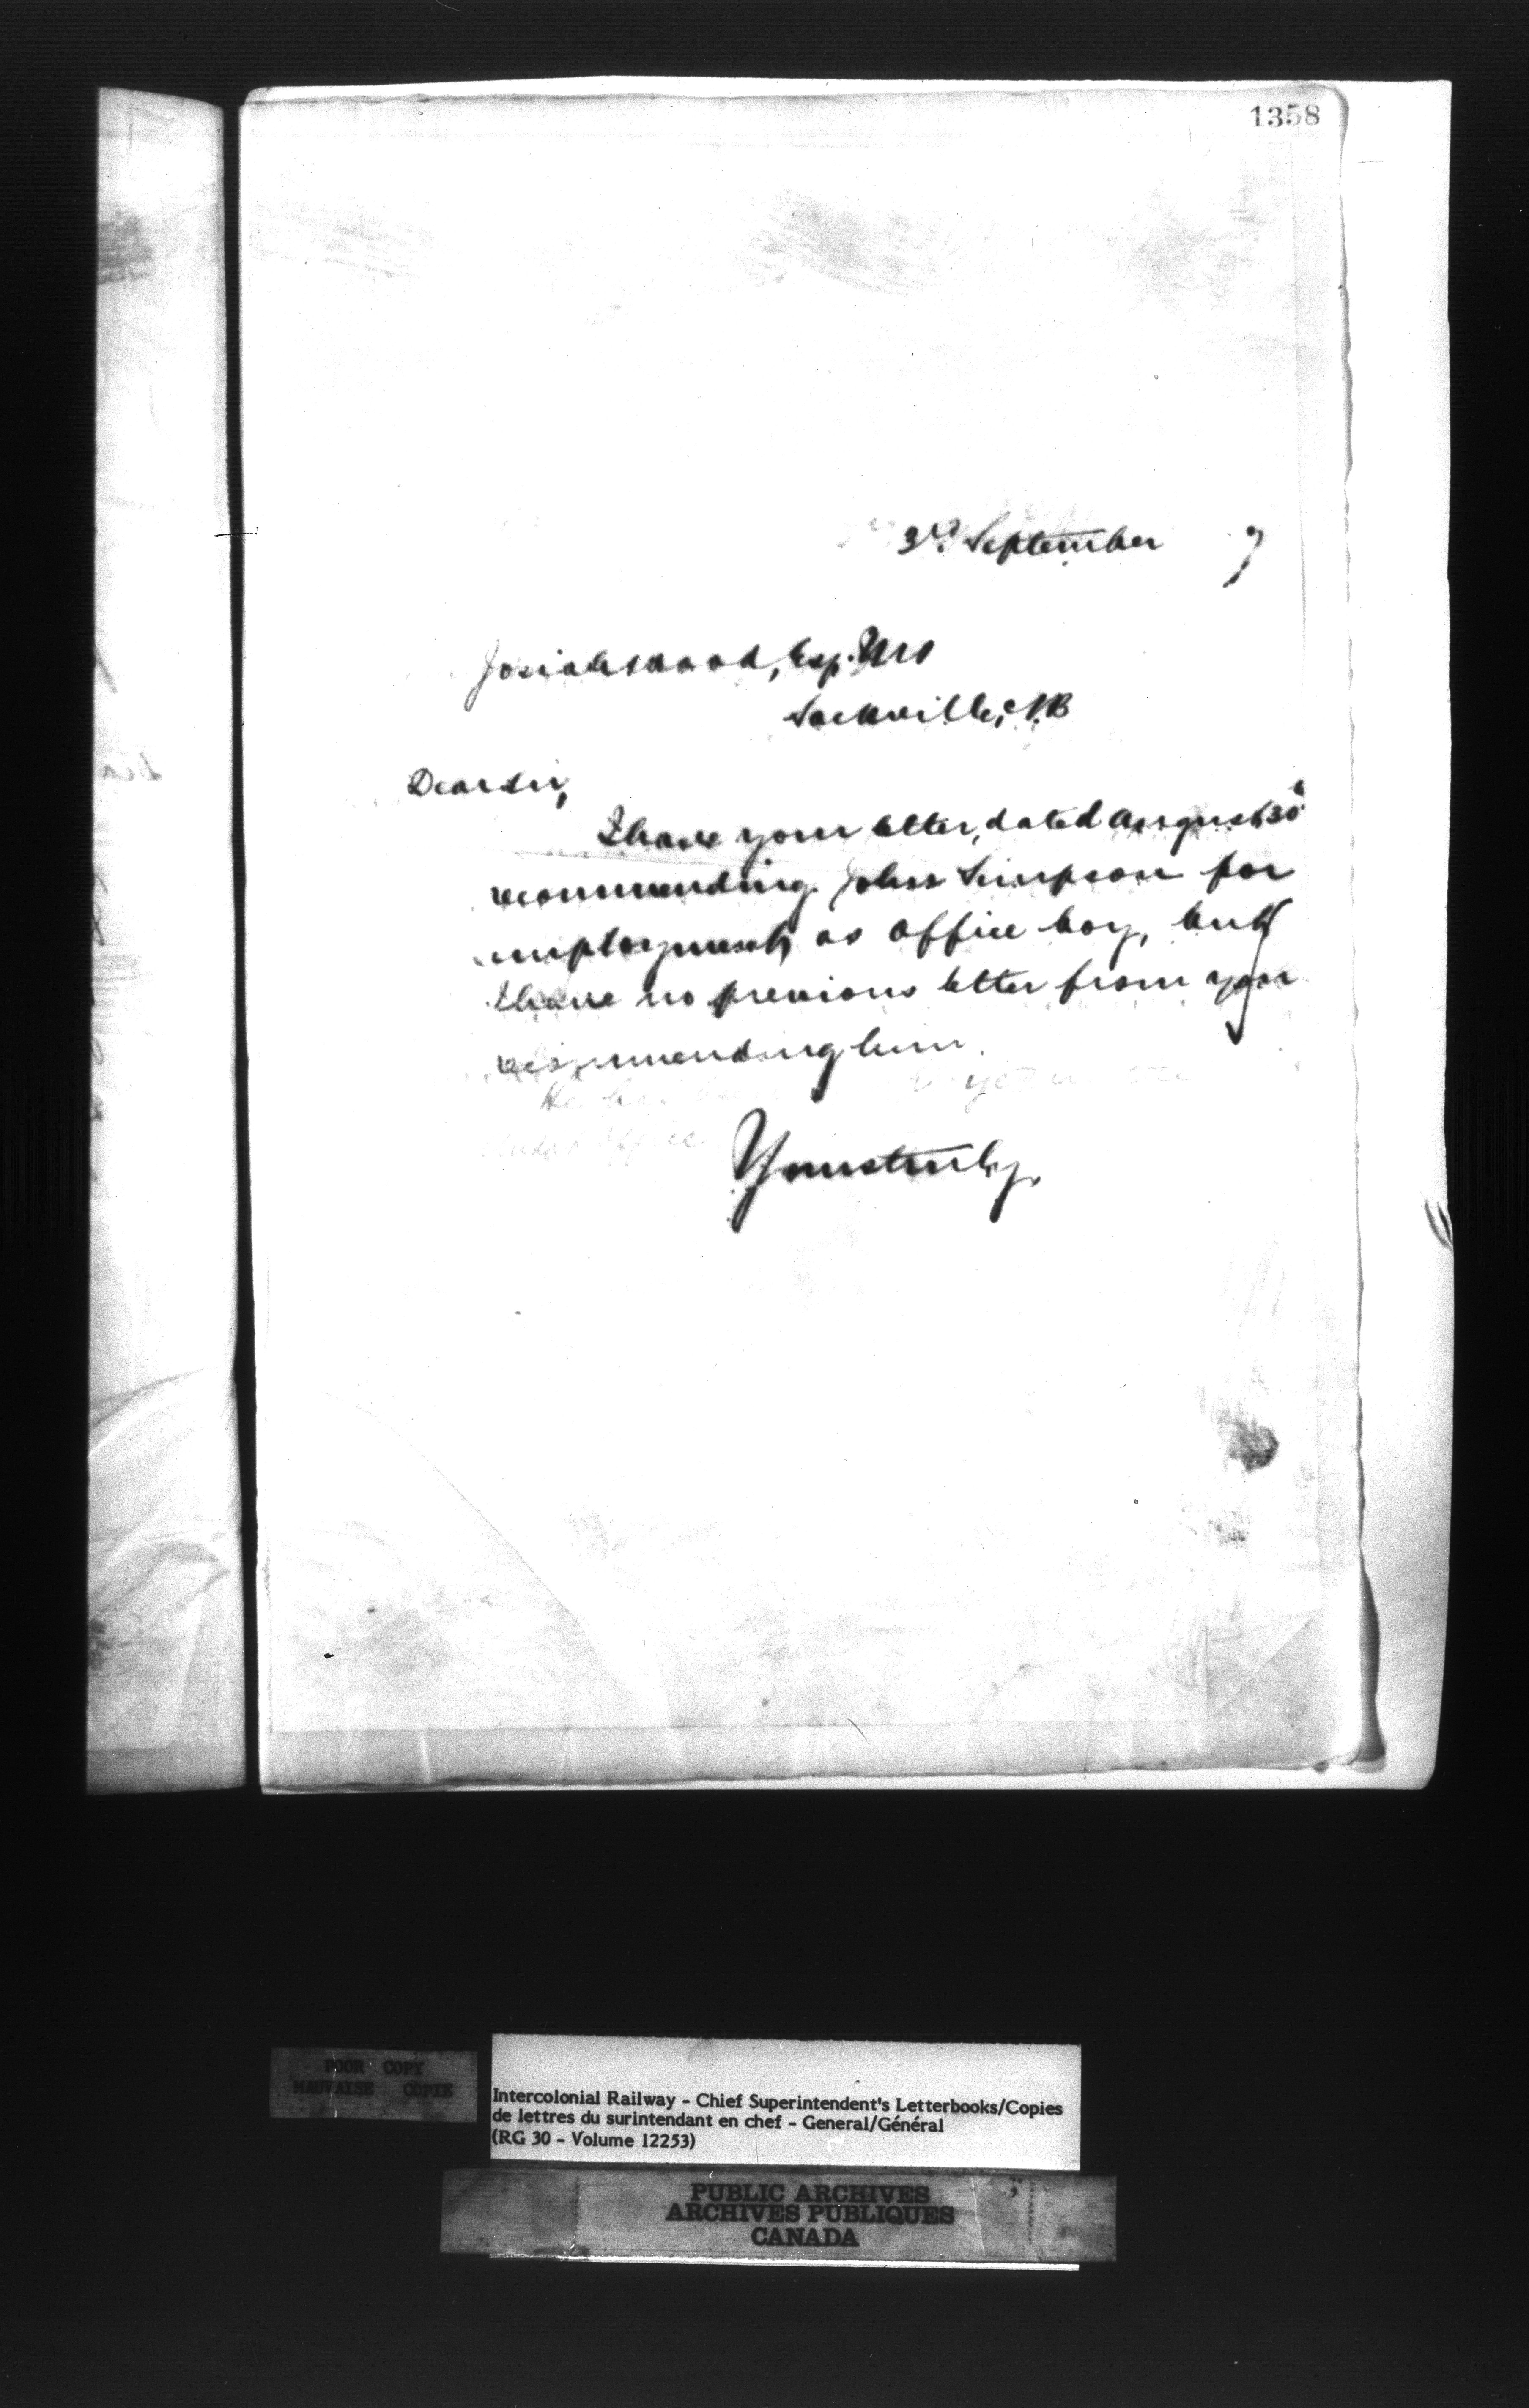 1358
3rd September 7
Josiah Wood, Esq. MP
Sackville, N.B
Dear Sir,
I have your letter, dated August 30th
recommending John Simpson for
employment, as office boy, but
I have no previous letter from you
recommending him.
He has
office
Yours truly,
POOR COPY
MAUVAISE COPIE
Intercolonial Railway - Chief Superintendent's Letterbooks/Copies
de lettres du surintendant en chef - General/Général
(RG 30 - Volume 12253)
PUBLIC ARCHIVES
ARCHIVES PUBLIQUES
CANADA